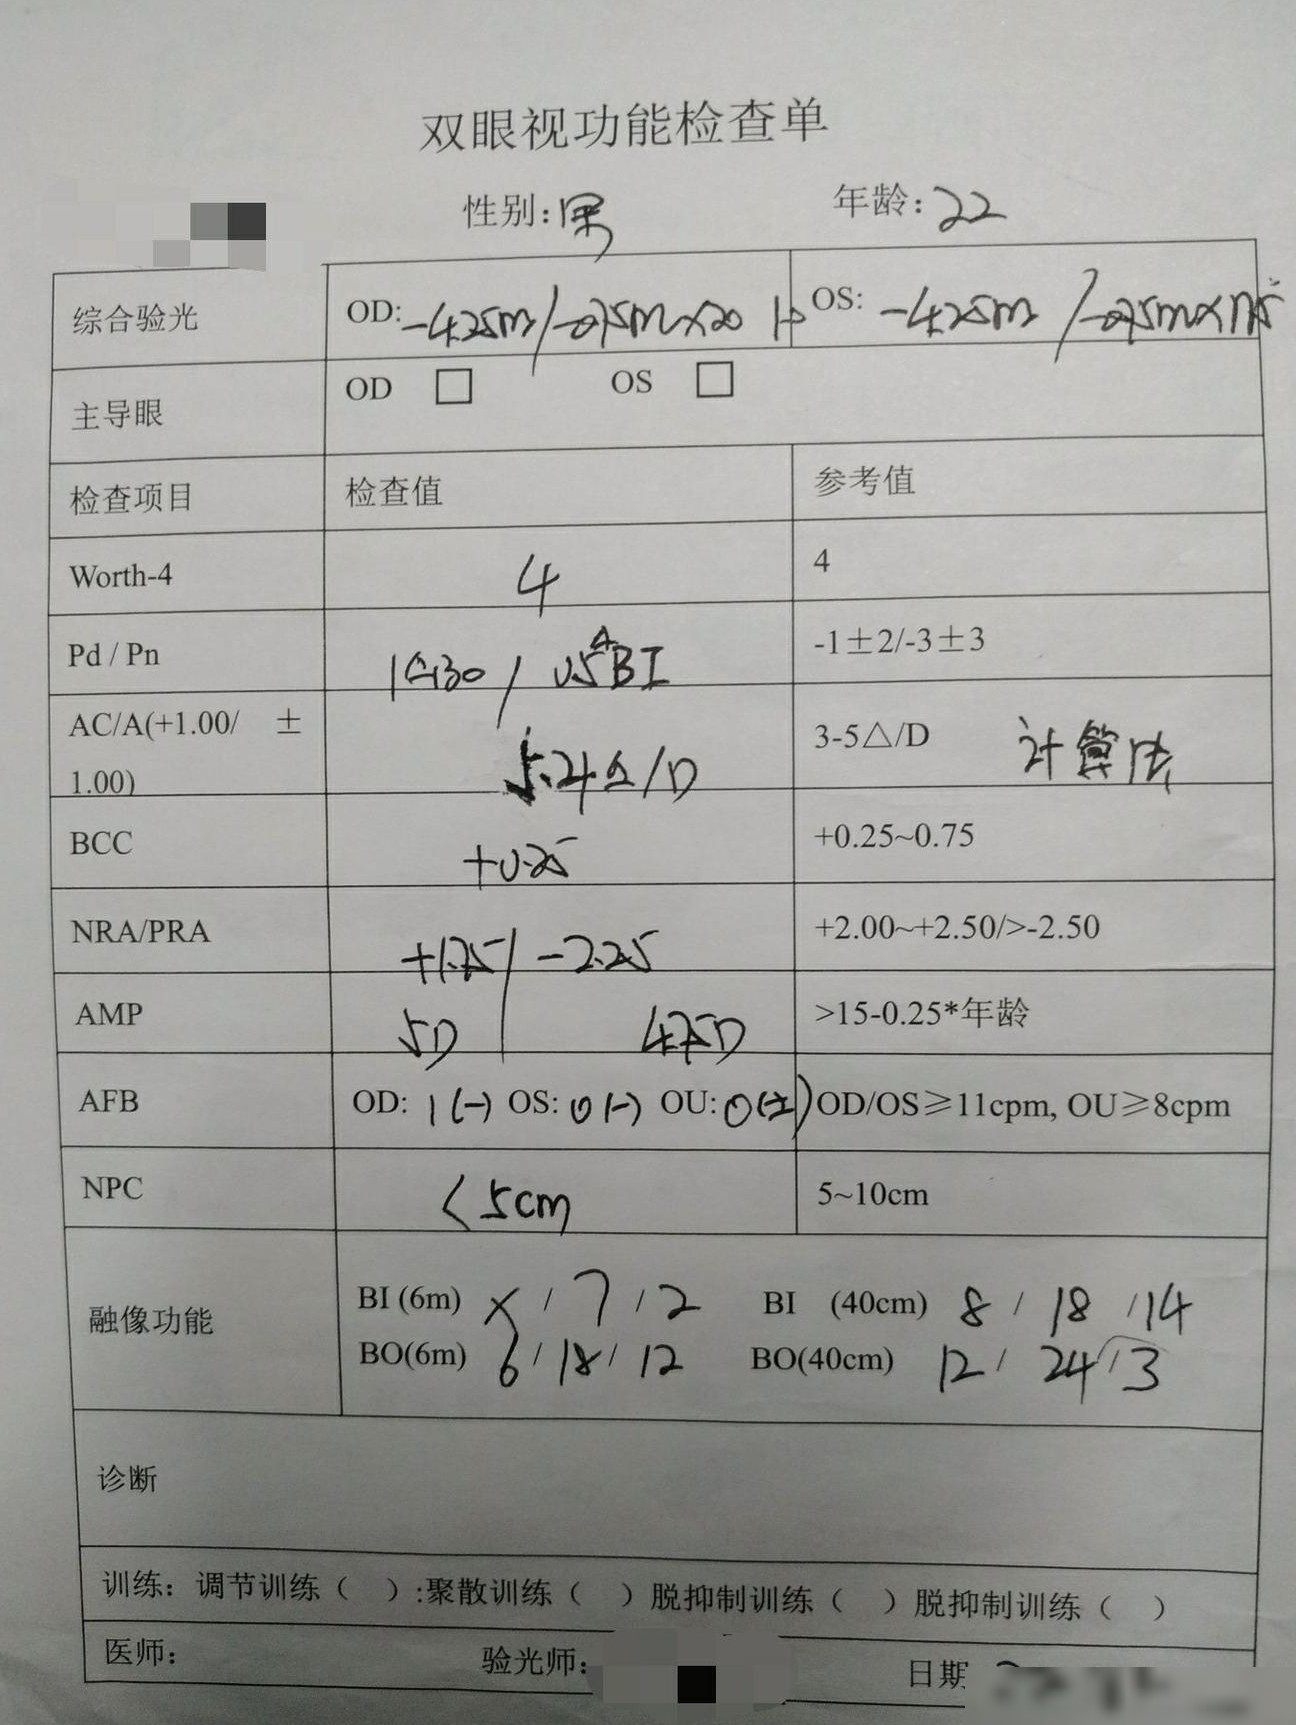 双眼视功能检查单
性别:男 年龄:22
综合验光 OD: -4.25 / -0.75 ×20 OS: -4.25 / -0.75 ×175
主导眼 OD □ OS □
检查项目 检查值 参考值
Worth-4 4 4
Pd / Pn / 0.5△BI -1±2/-3±3
AC/A(+1.00/ ±
1.00) 5.4△/D 3-5△/D 计算法
BCC +0.25 +0.25~0.75
NRA/PRA +1.75/-2.25 +2.00~+2.50/>-2.50
AMP 5D 4.75D >15-0.25*年龄
AFB OD: 1(-) OS: 0(-) OU: 0(±) OD/OS≥11cpm, OU≥8cpm
NPC <5cm 5~10cm
融像功能 BI (6m) × / 7 / 2 BI (40cm) 8 / 18 / 14
BO(6m) 6 / 18 / 12 BO(40cm) 12 / 24 / 3
诊断
训练：调节训练（ ）:聚散训练（ ）脱抑制训练（ ）脱抑制训练（ ）
医师: 验光师: 日期